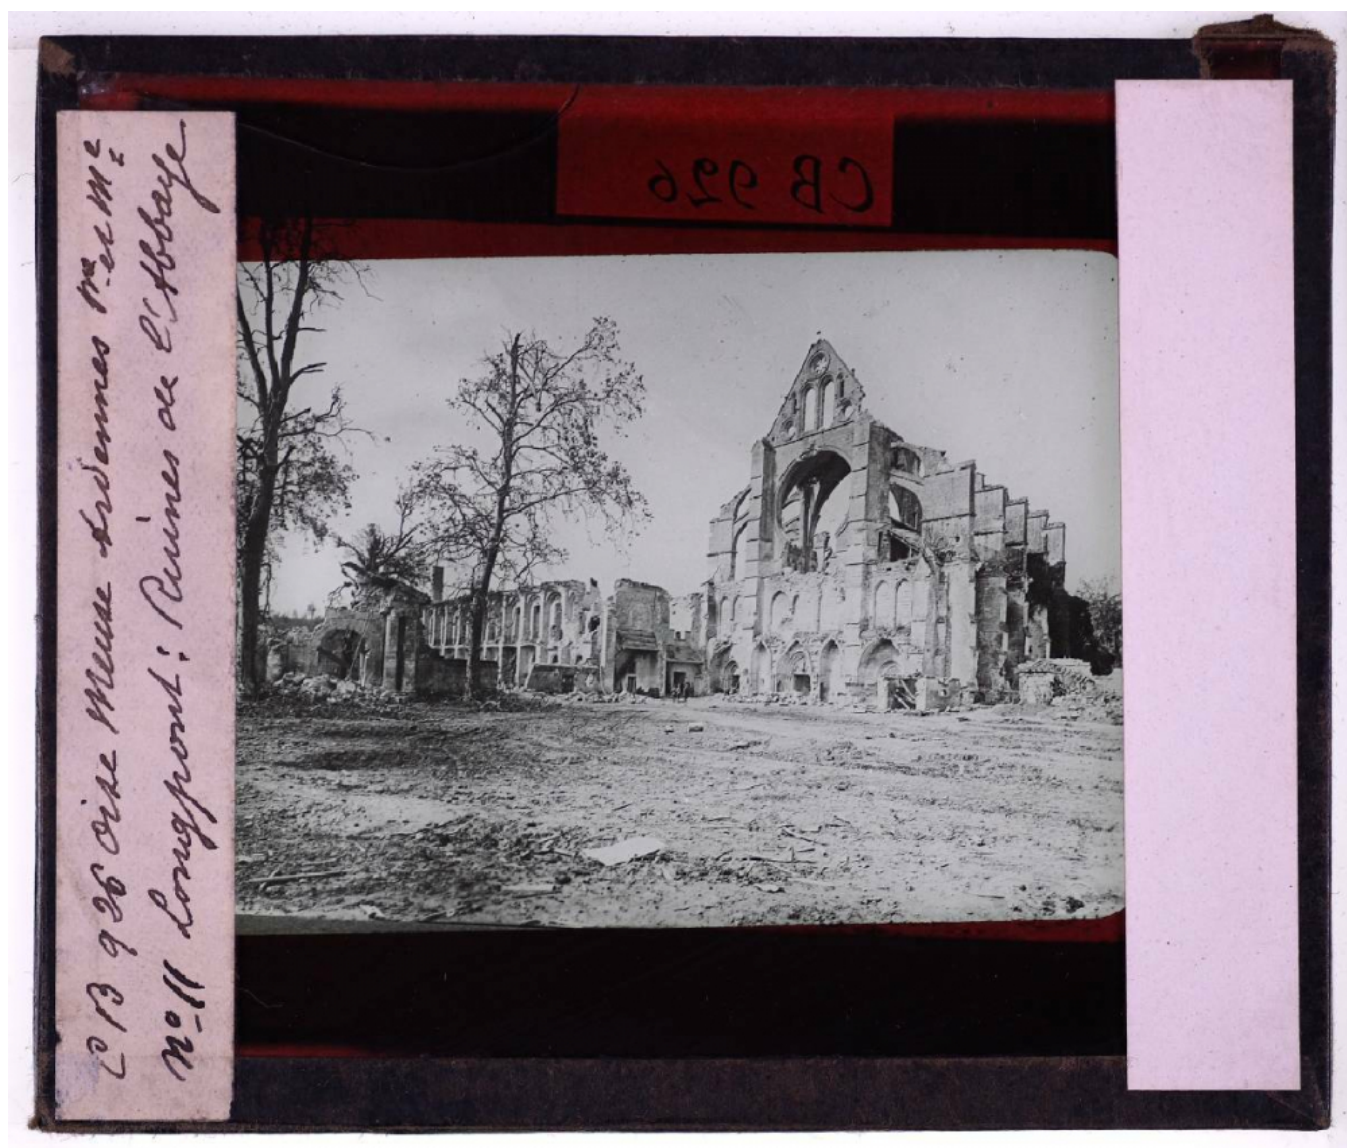 CB 926
CB 926 Oise Meuse Ardennes
No 11 Longpont : Ruines de l'Abbaye